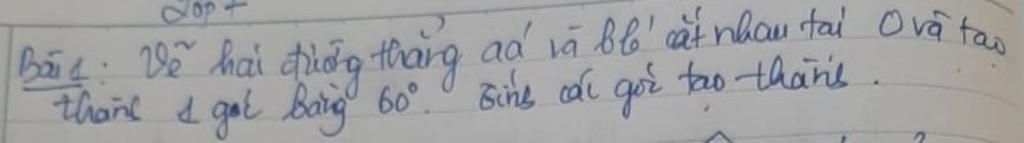 Bài 1: Vẽ hai đường thẳng aa' và bb' cắt nhau tại O và tạo
thành 1 góc bằng 60°. Tính các góc tạo thành.